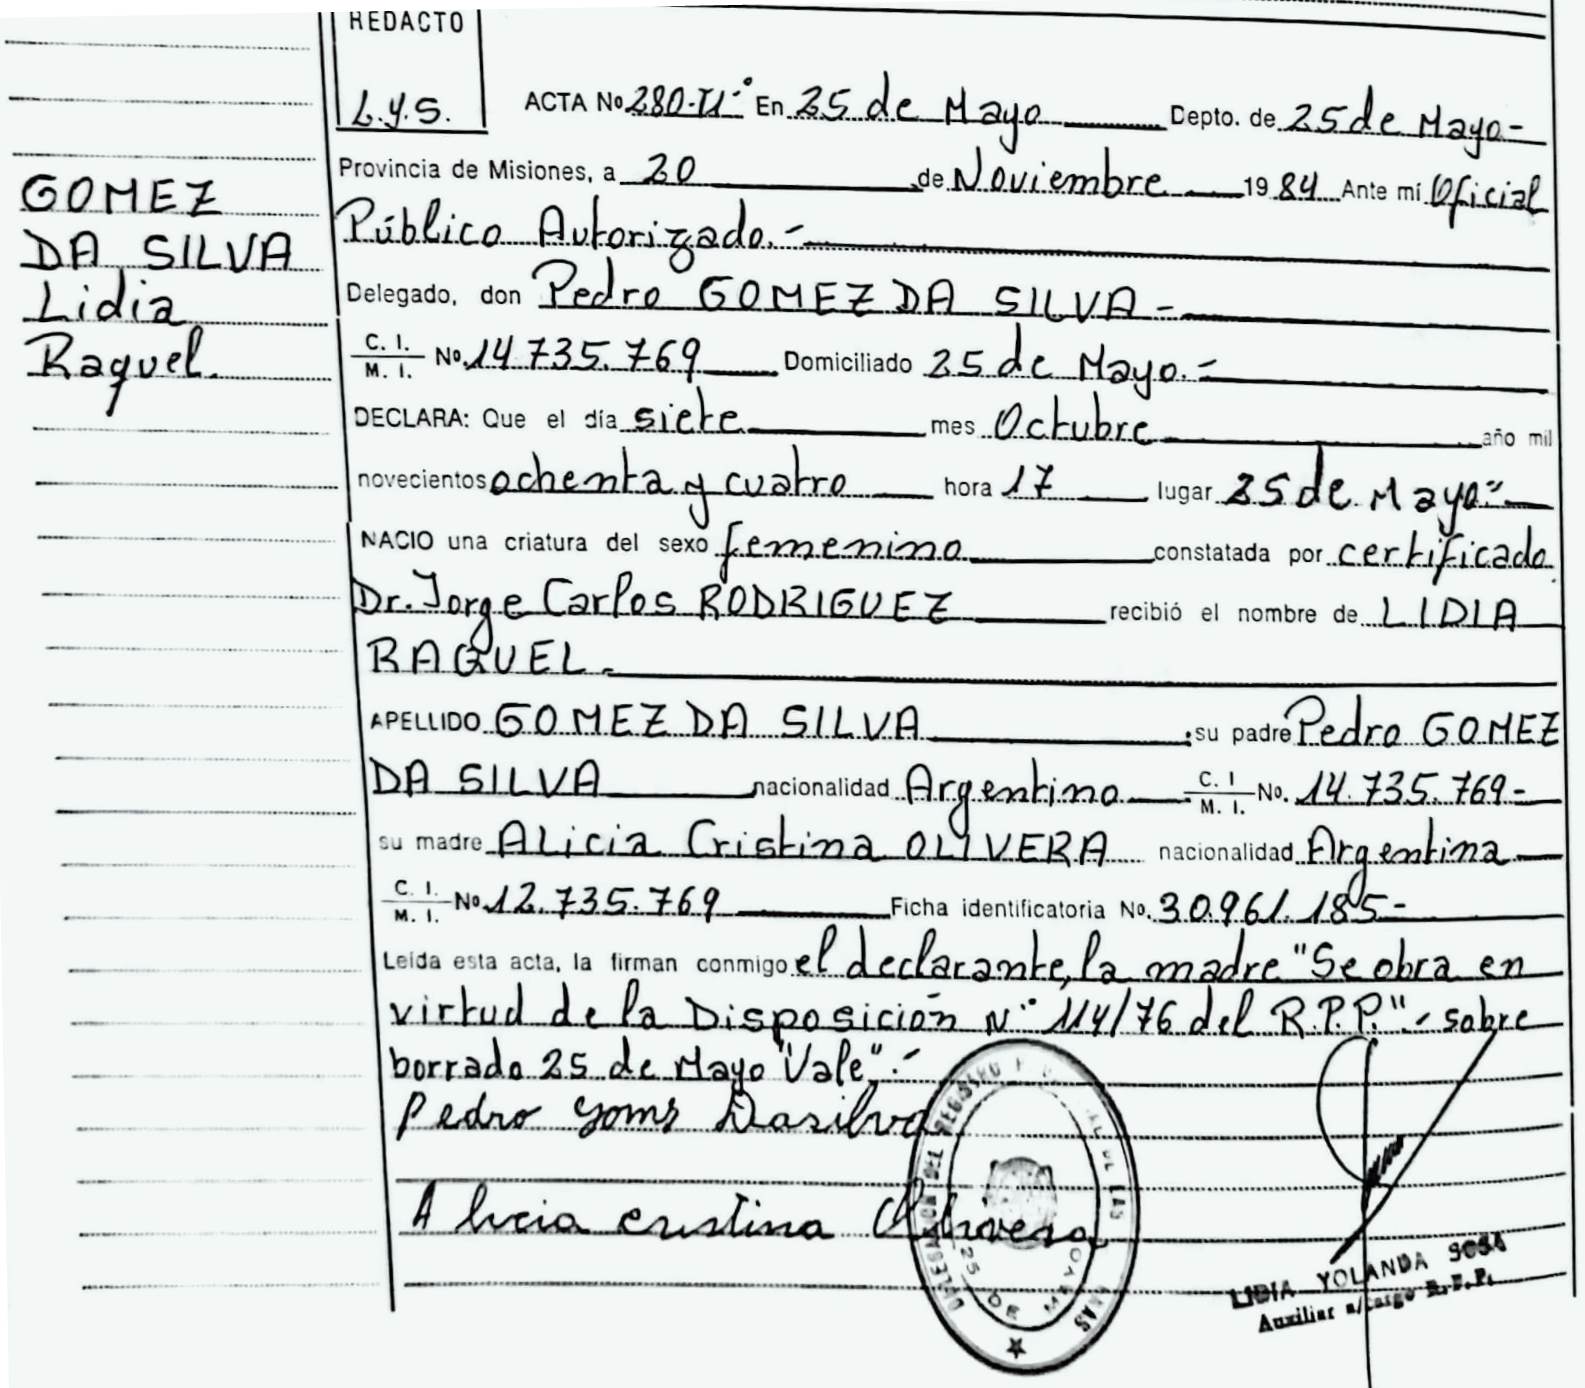 REDACTO
L.Y.S.
GOMEZ
DA SILVA
Lidia
Raquel.
ACTA No 280-TIº En 25 de Mayo Depto. de 25 de Mayo-
Provincia de Misiones, a 20 de Noviembre 1984 Ante mí Oficial
Público Autorizado.-
Delegado, don Pedro GOMEZ DA SILVA -
C. I. / M. I. No. 14.735.769 Domiciliado 25 de Mayo.-
DECLARA: Que el día siete mes Octubre año mil
novecientos ochenta y cuatro hora 17 lugar 25 de Mayo"
NACIO una criatura del sexo femenino constatada por certificado
Dr. Jorge Carlos RODRIGUEZ recibió el nombre de LIDIA
RAQUEL.
APELLIDO GOMEZ DA SILVA ; su padre Pedro GOMEZ
DA SILVA nacionalidad Argentino C. I. / M. I. No. 14.735.769-
su madre Alicia Cristina OLIVERA nacionalidad Argentina
C. I. / M. I. No. 12.735.769 Ficha identificatoria No. 30.961.185-
Leída esta acta, la firman conmigo el declarante, la madre "Se obra en
virtud de la Disposición Nº 114/76 del R.P.P."- sobre
borrado 25 de Mayo "Vale".-
Pedro goms Dasilva
Alicia cristina Olivera
DELEGACION DEL REGISTRO DE LAS
25 DE MAYO
LIDIA YOLANDA SOSA
Auxiliar a/cargo R.P.P.